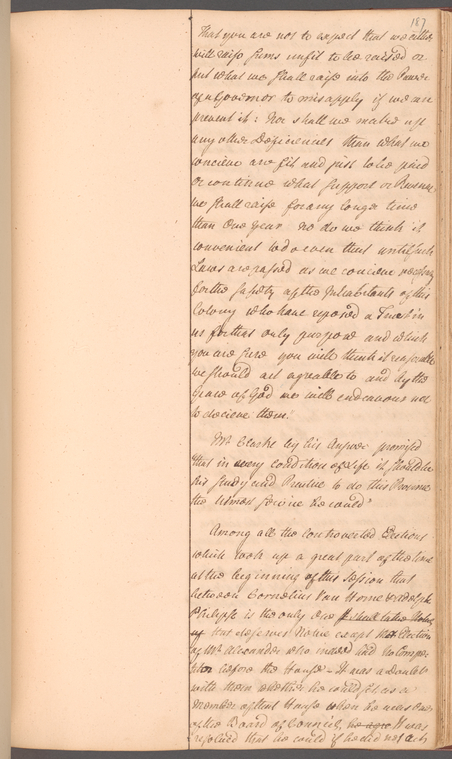 187
That you are not to expect that we either
will raise sums unfit to be raised or
put what we shall raise into the Power
of a Governor to misapply if we can
prevent it: nor shall we make up
any other Deficiencies than what we
conceive are fit and just to be paid
or continue what support or Revenue
we shall raise for any longer time
than One year no do we think it
convenient to do even that until such
Laws are passed as we conceive necessary
for the safety of the Inhabitants of this
Colony who have reposed a Trust in
us for that only purpose and which
you are sure you will think it reasonable
we should act agreable to and by the
Grace of God we will endeavour not
to deceive them.
Mr Clarke by his Answer promised
that in every condition of life it should be
his study and Practice to do this Province
the utmost service he could
Among all the controverted Elections
which took up a great part of the time
at the beginning of this Session that
between Cornelius Van Horne & Adolph
Philipse is the only one I shall take Notice
of that deserves Notice except the Election
of Mr Alexander who made no Compe
titor before the House - It was a doubt
with them whether he could sit as a
Member of that House when he was One
of the Board of Council, It was
resolved that he could if he did not act